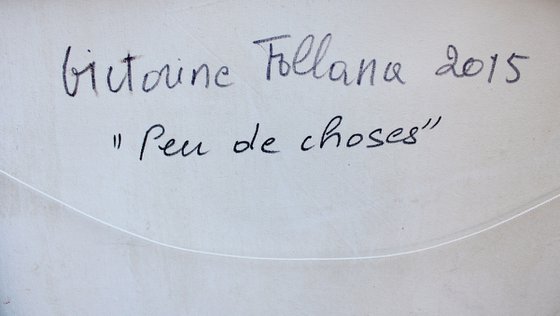 Victorine Follana 2015
"Peu de choses"